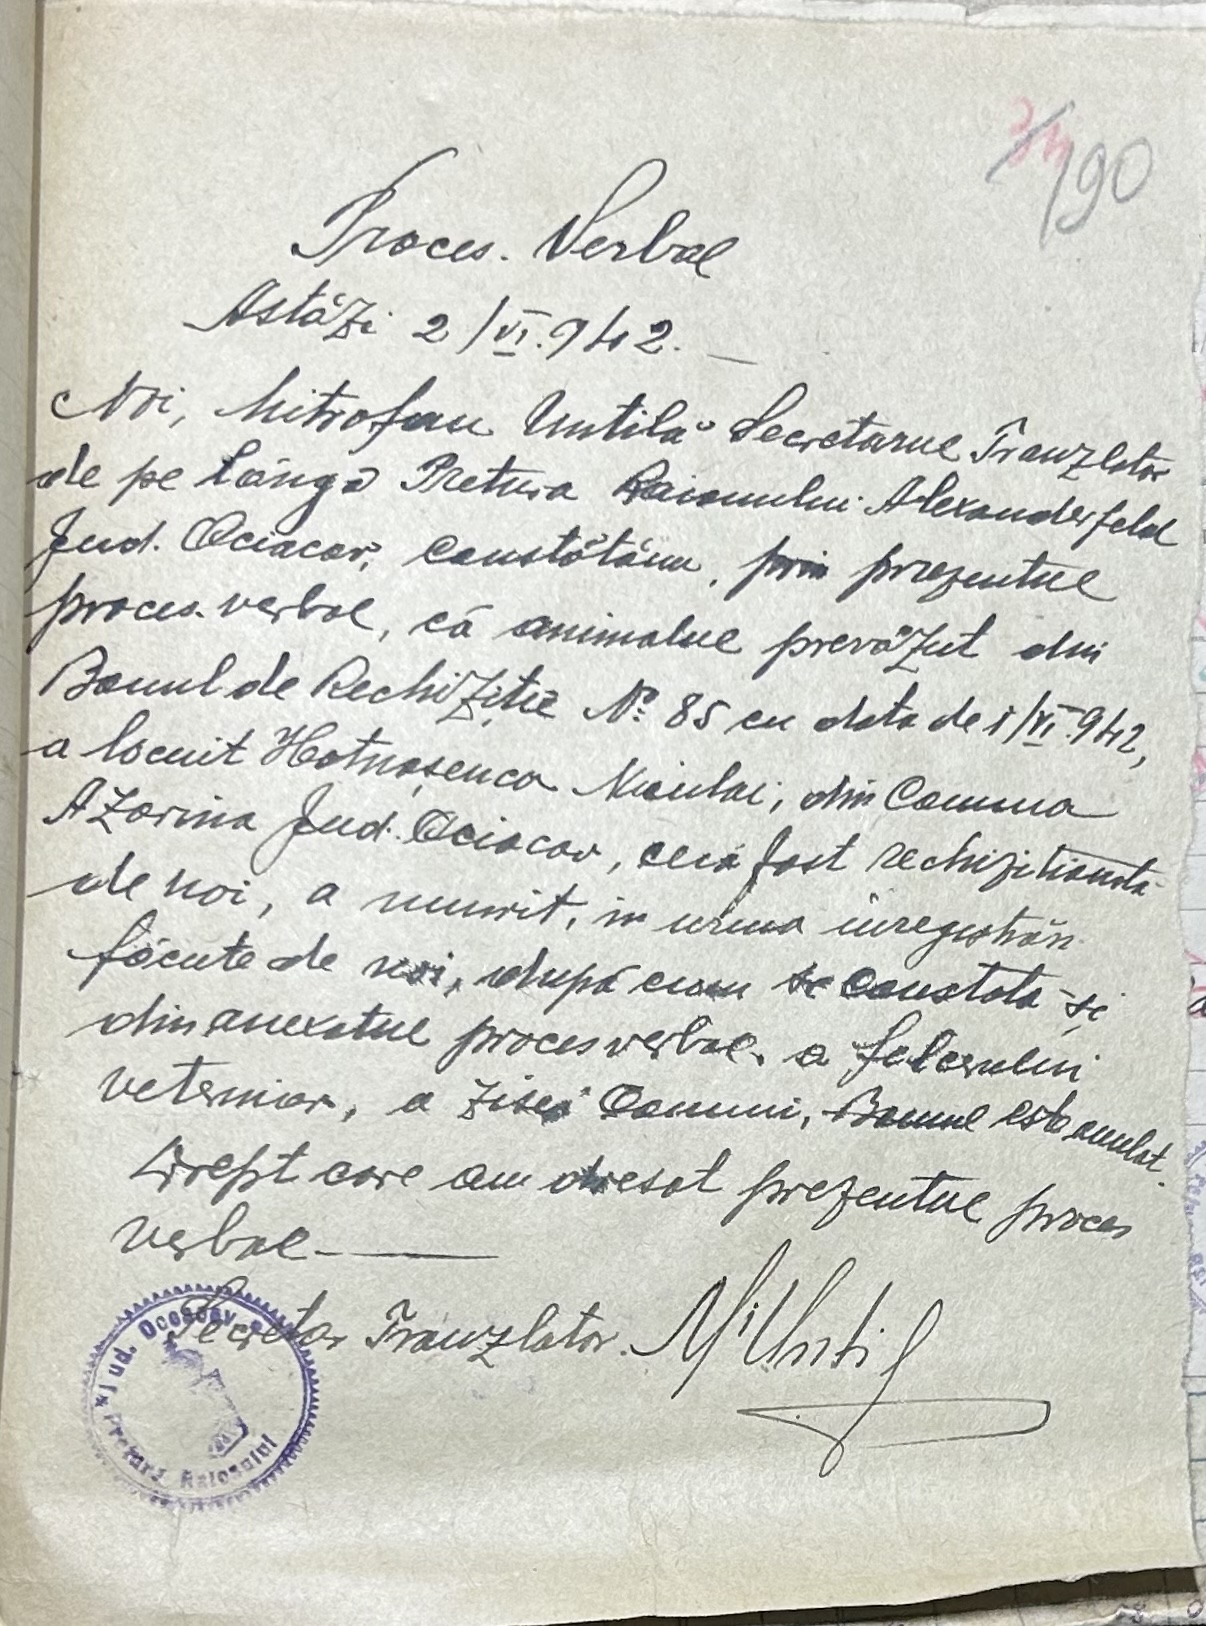 190
Proces. Verbal
Astăzi 2/VI.942.
Noi, Mitrofan Untilă Secretarul Tranzlator
de pe lângă Pretura Raionului Alexanderfeld
Jud. Ociacov, constatăm, prin prezentul
proces. verbal, că animalul prevăzut din
Bonul de Rechiziție № 85 cu data de 1/VI.942,
a locuit Niculai, din Comuna
Azarina Jud. Ociacov, ce a fost rechiziționată
de noi, a murit, in urma
făcute de noi, după cum se constată și
din anexatul proces verbal, a felcerului
veterinar, a zisei Comuni, Bonul este anulat.
Drept care am dresat prezentul proces
verbal
Secretar Tranzlator. M Untilă
Jud. Oceacov
Pretura Raionului